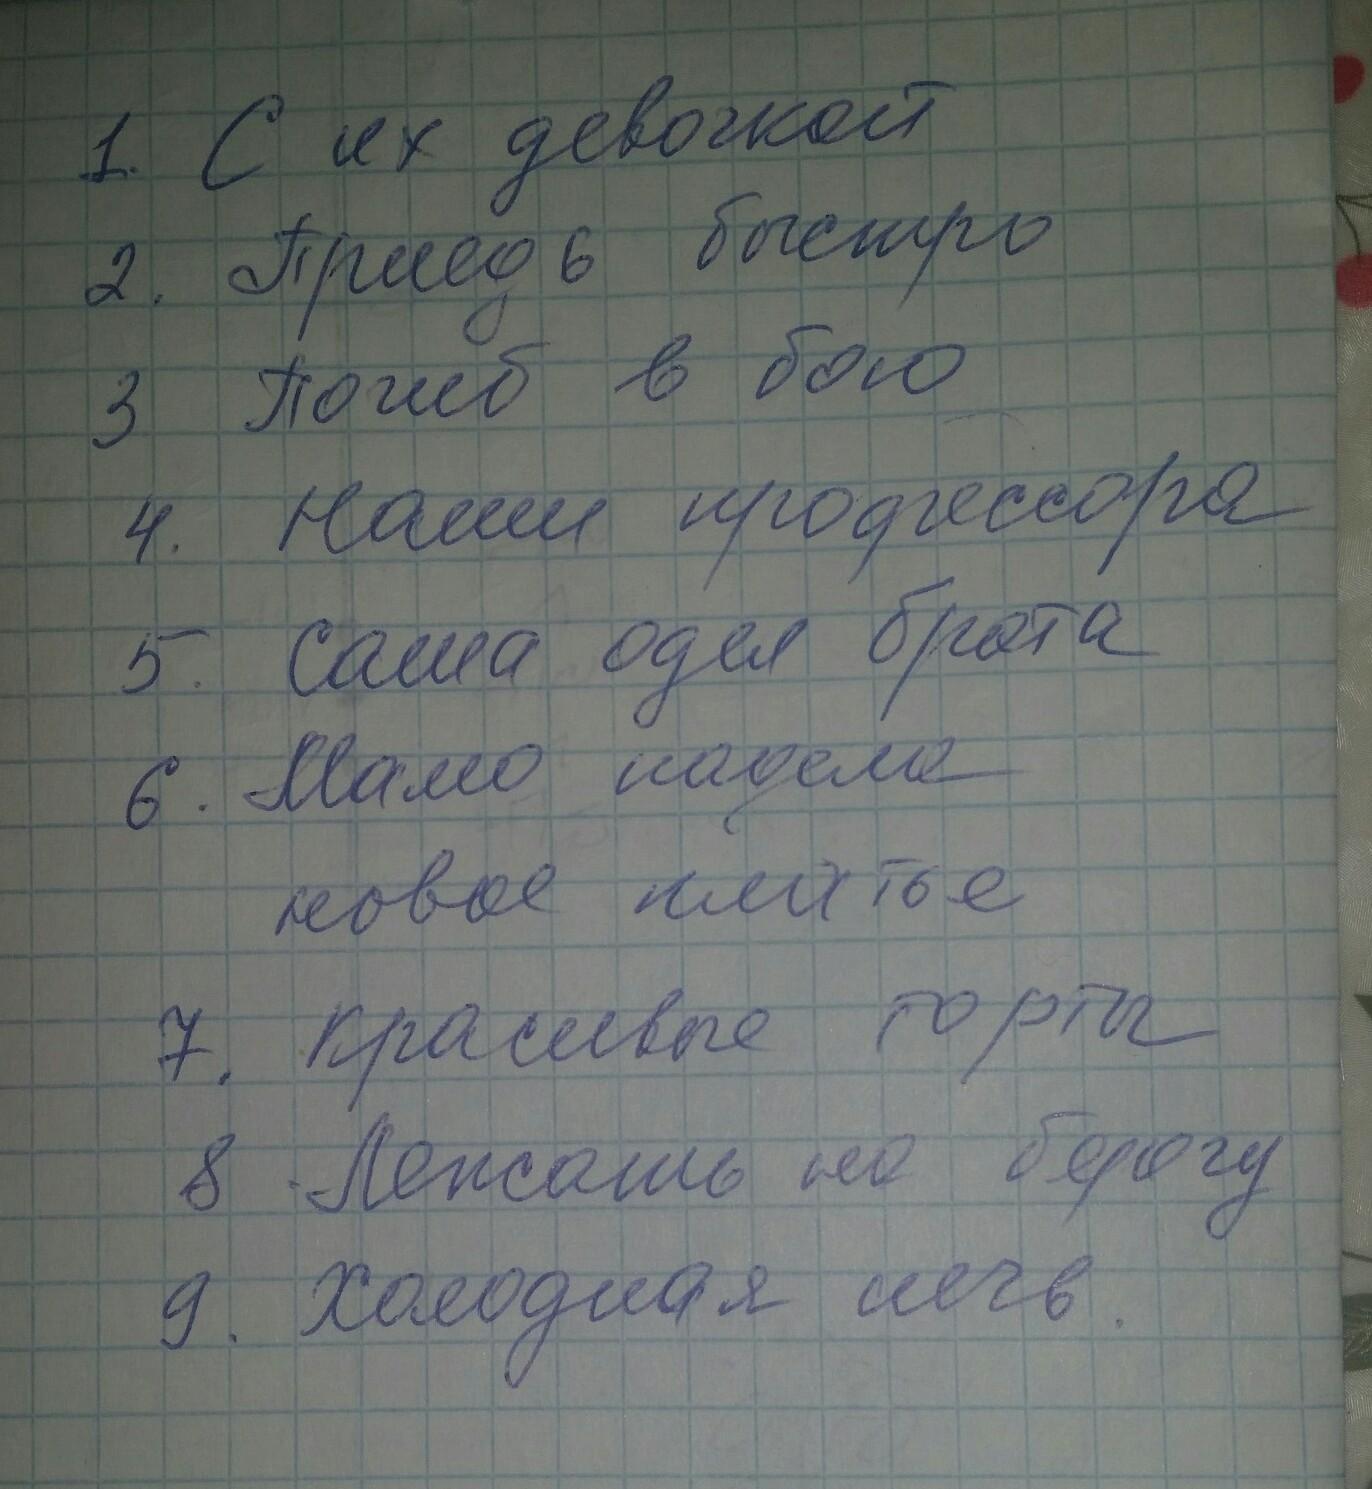 1. С их девочкой
2. Приедь быстро
3 Погиб в бою
4. Наши профессора
5. Саша одел брата
6. Мама надела
новое платье
7. Красивые торты
8. Лежашь на берегу
9. Холодная печь.